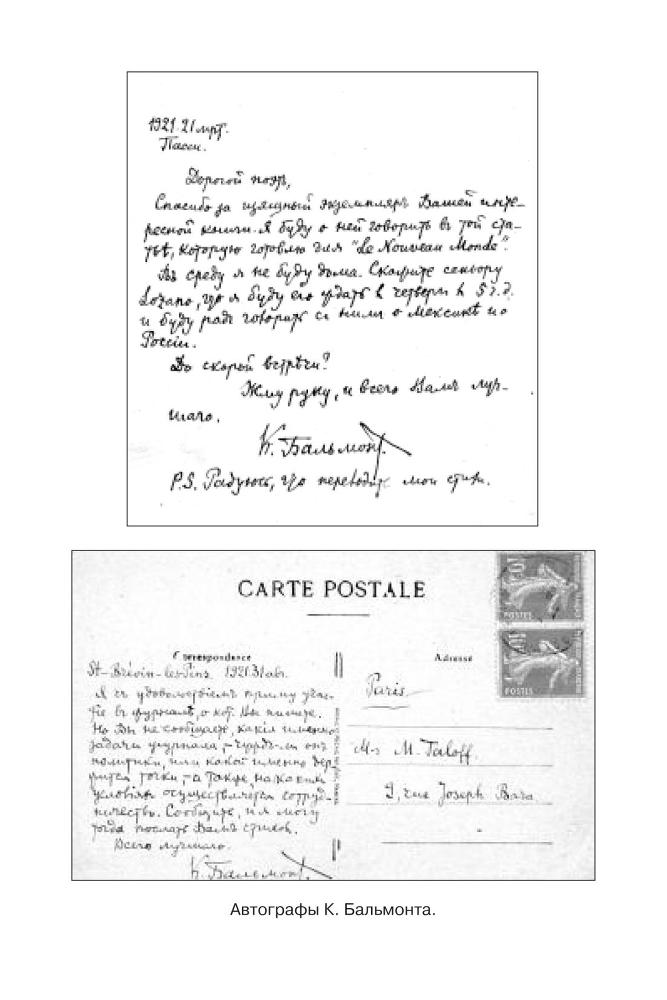 1921. 21 мрт.
Пасси.
Дорогой поэтъ,
Спасибо за изящный экземпляръ Вашей инте-
ресной книги. Я буду о ней говорить въ той ста-
тьѣ, которую готовлю для "Le Nouveau Monde".
Въ среду я не буду дома. Скажите сеньору
Lozano, что я буду его ждать в четверг в 5 ч. д.
и буду радъ говорить съ нимъ о Мексикѣ и о
Россіи.
До скорой встрѣчи?
Жму руку, и всего Вамъ луч-
шаго.
К. Бальмонт.
P.S. Радуюсь, что переводите мои стихи.
CARTE POSTALE
Correspondance
Adresse
POSTES
POSTES
St-Brévin-les-Pins. 1921. 31 авг.
Я съ удовольствіемъ приму учас-
тіе въ журналѣ, о кот. Вы пишете.
Но Вы не сообщаете, какія именно
задачи журнала, – чуждъ-ли онъ
политики, или какой именно дер-
жится точки, – а также на каких
условіяхъ осуществляется сотруд-
ничество. Сообщите, и я могу
тогда послать Вамъ стихов.
Всего лучшаго.
К. Бальмонт.
Paris.
M-r M. Taloff.
9, rue Joseph Bara.
Автографы К. Бальмонта.